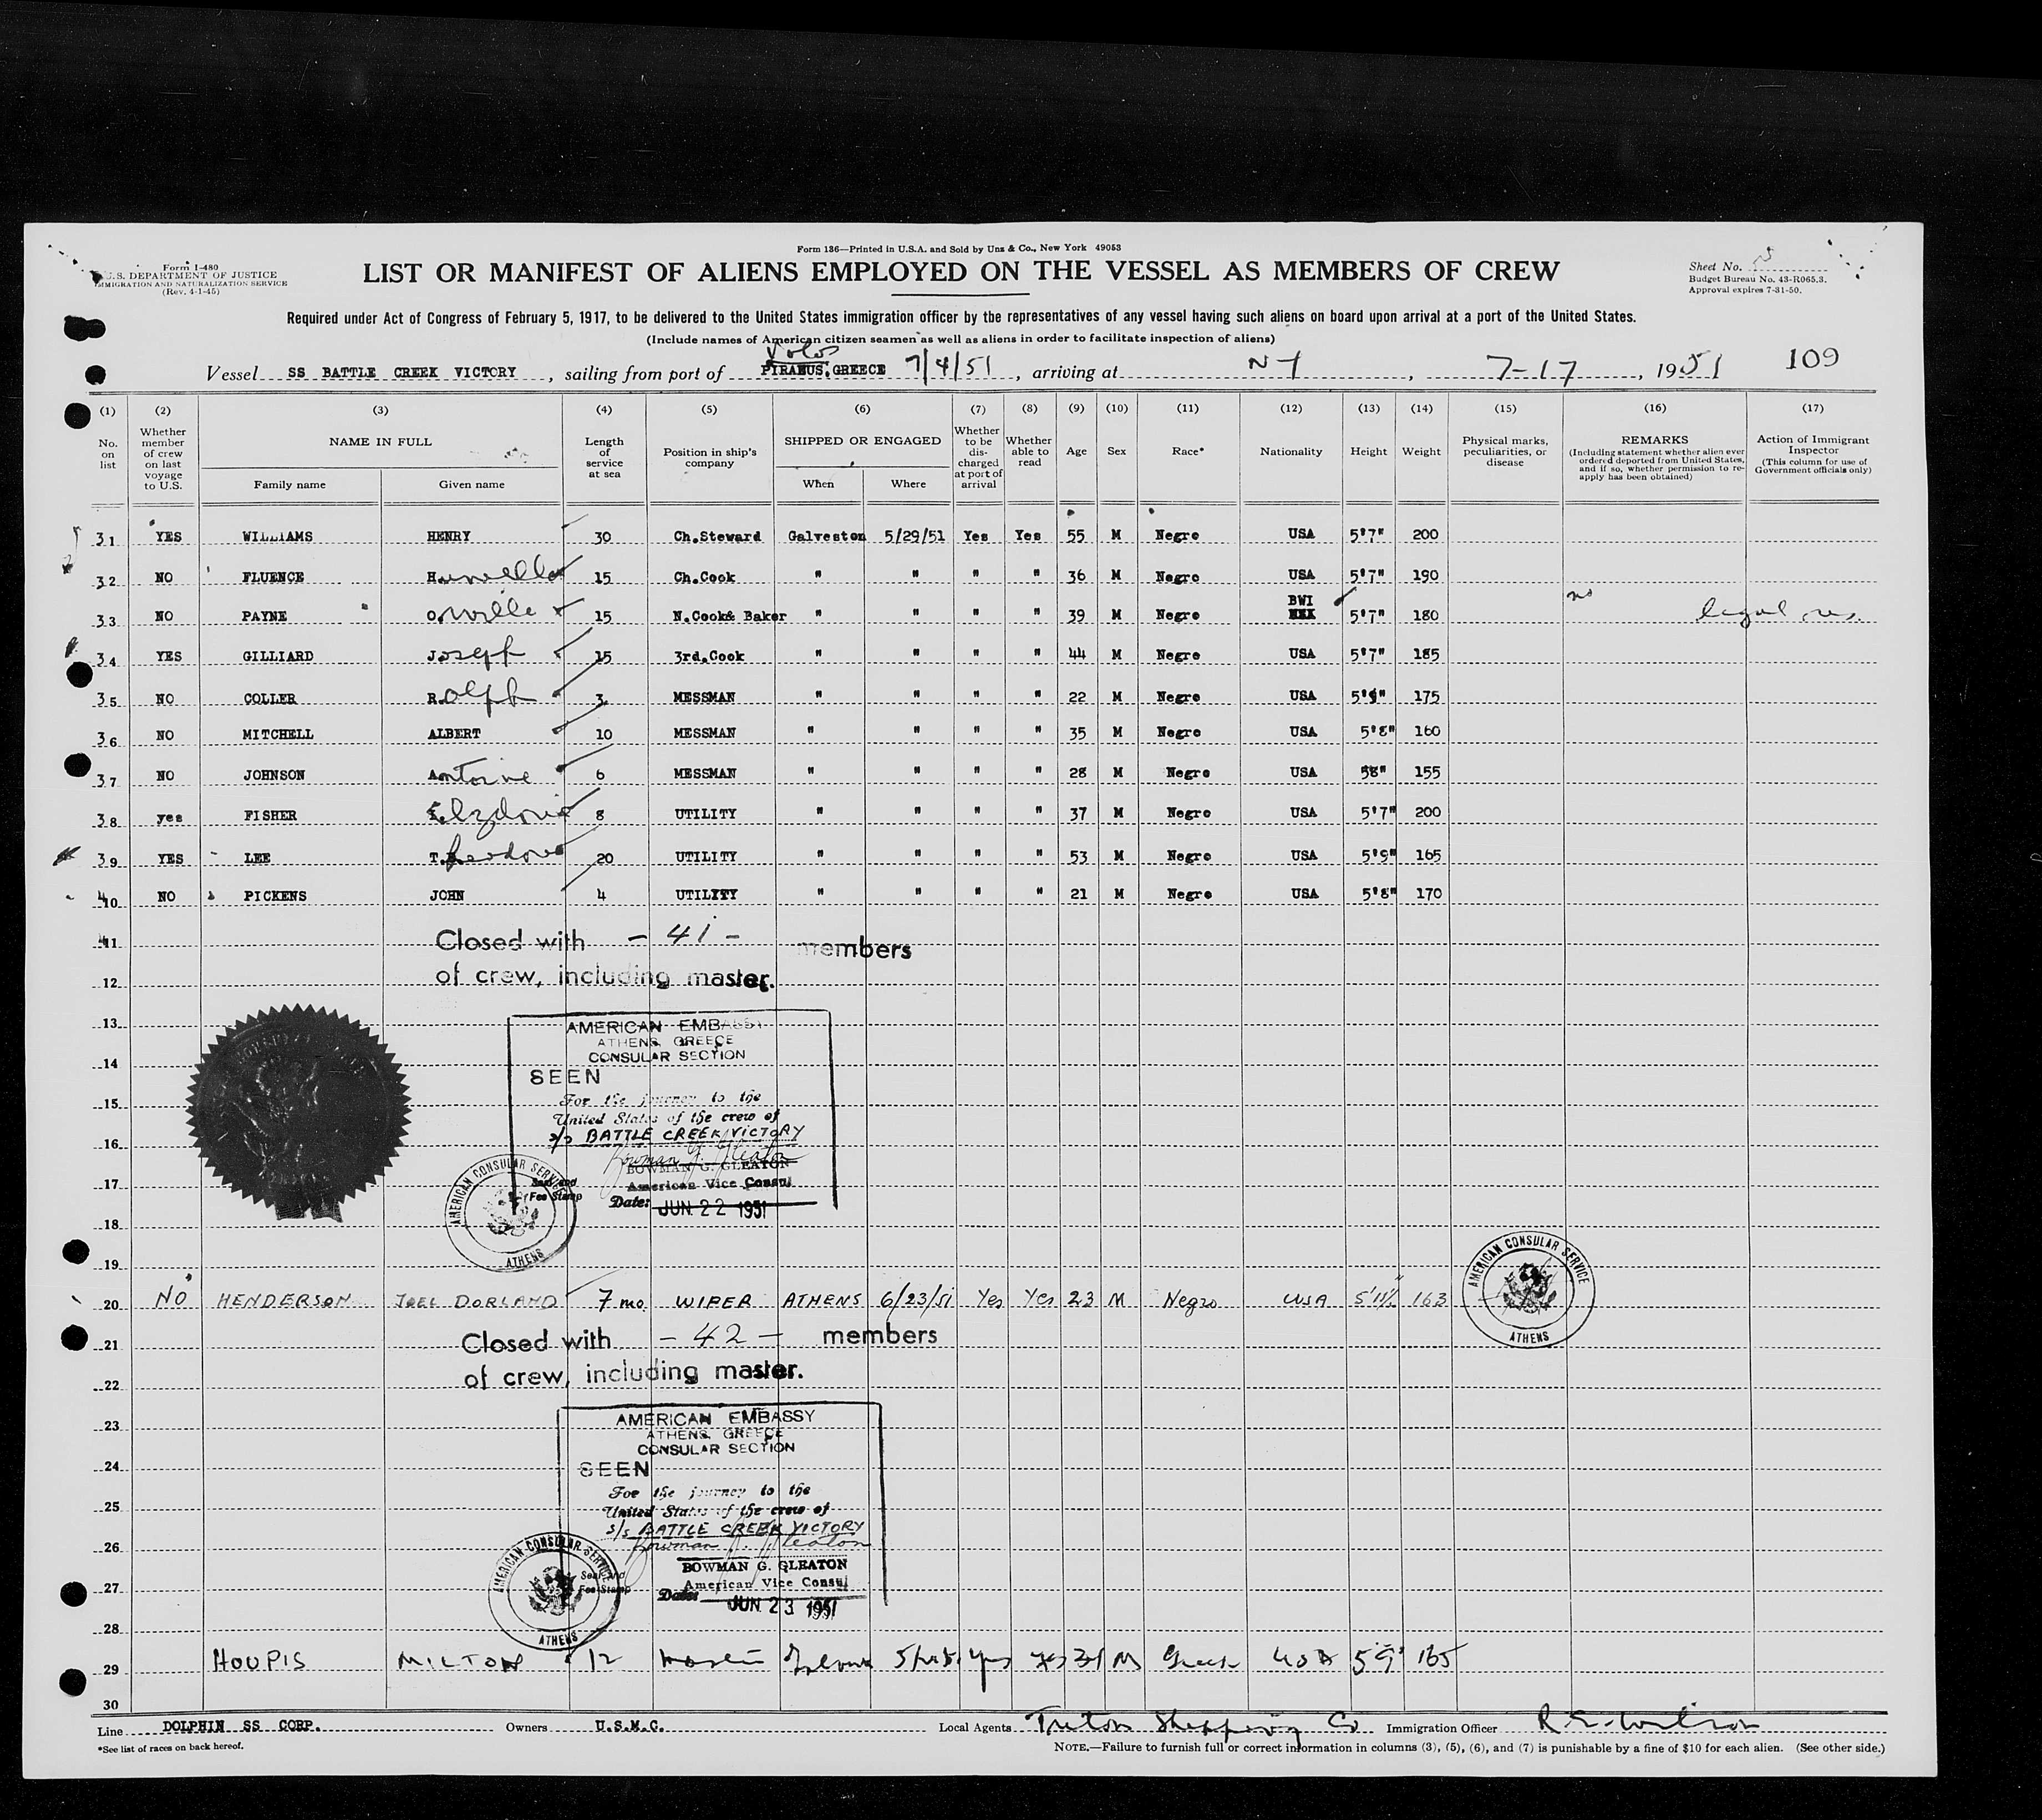 Form 136—Printed in U.S.A. and Sold by Unz & Co., New York 49053
Form I-480
U.S. DEPARTMENT OF JUSTICE
IMMIGRATION AND NATURALIZATION SERVICE
(Rev. 4-1-45)
LIST OR MANIFEST OF ALIENS EMPLOYED ON THE VESSEL AS MEMBERS OF CREW
Sheet No.
Budget Bureau No. 43-R065.3.
Approval expires 7-31-50.
Required under Act of Congress of February 5, 1917, to be delivered to the United States immigration officer by the representatives of any vessel having such aliens on board upon arrival at a port of the United States.
(Include names of American citizen seamen as well as aliens in order to facilitate inspection of aliens)
Volos
Vessel SS BATTLE CREEK VICTORY, sailing from port of PIRAEUS, GREECE 7/4/51, arriving at NY, 7-17, 1951 109
(1) (2) (3) (4) (5) (6) (7) (8) (9) (10) (11) (12) (13) (14) (15) (16) (17)
No. on list
Whether member of crew on last voyage to U.S.
NAME IN FULL
Family name
Given name
Length of service at sea
Position in ship's company
SHIPPED OR ENGAGED
When
Where
Whether to be discharged at port of arrival
Whether able to read
Age
Sex
Race*
Nationality
Height
Weight
Physical marks, peculiarities, or disease
REMARKS
(Including statement whether alien ever ordered deported from United States, and if so, whether permission to reapply has been obtained)
Action of Immigrant Inspector
(This column for use of Government officials only)
31 YES WILLIAMS HENRY 30 Ch.Steward Galveston 5/29/51 Yes Yes 55 M Negro USA 5'7" 200
32 NO FLUENCE 15 Ch.Cook " " " " 36 M Negro USA 5'7" 190
33 NO PAYNE Orville 15 N.Cook& Baker " " " " 39 M Negro BWI 5'7" 180 no legal res.
34 YES GILLIARD Joseph 15 3rd.Cook " " " " 44 M Negro USA 5'7" 185
35 NO COLLER Rolph 3 MESSMAN " " " " 22 M Negro USA 5'9" 175
36 NO MITCHELL ALBERT 10 MESSMAN " " " " 35 M Negro USA 5'8" 160
37 NO JOHNSON Antoine 6 MESSMAN " " " " 28 M Negro USA 58" 155
38 yes FISHER 8 UTILITY " " " " 37 M Negro USA 5'7" 200
39 YES LEE T.heodore 20 UTILITY " " " " 53 M Negro USA 5'9" 165
40 NO PICKENS JOHN 4 UTILITY " " " " 21 M Negro USA 5'8" 170
41
Closed with - 41 - members
of crew, including master.
12
13
AMERICAN EMBASSY
ATHENS, GREECE
CONSULAR SECTION
14
SEEN
15
For the journey to the
United States of the crew of
16
s/s BATTLE CREEK VICTORY
Bowman G. Gleaton
BOWMAN G. GLEATON
17
American Vice Consul
Date: JUN 22 1951
Seal and
Fee Stamp
AMERICAN CONSULAR SERVICE
ATHENS
18
19
20 NO HENDERSON JOEL DORLAND 7 mo WIPER ATHENS 6/23/51 Yes Yes 23 M Negro USA 5'11½" 163
AMERICAN CONSULAR SERVICE
ATHENS
21
Closed with - 42 - members
of crew, including master.
22
23
AMERICAN EMBASSY
ATHENS, GREECE
CONSULAR SECTION
24
SEEN
25
For the journey to the
United States of the crew of
s/s BATTLE CREEK VICTORY
26
Bowman G. Gleaton
BOWMAN G. GLEATON
27
American Vice Consul
Date: JUN 23 1951
Seal and
Fee Stamp
AMERICAN CONSULAR SERVICE
ATHENS
28
29 HOUPIS MILTON 12 yes yes M Greek USA 5'9" 165
30
Line DOLPHIN SS CORP. Owners U.S.M.C. Local Agents Triton Shipping Co Immigration Officer R. E. Wilson
*See list of races on back hereof.
NOTE.—Failure to furnish full or correct information in columns (3), (5), (6), and (7) is punishable by a fine of $10 for each alien. (See other side.)